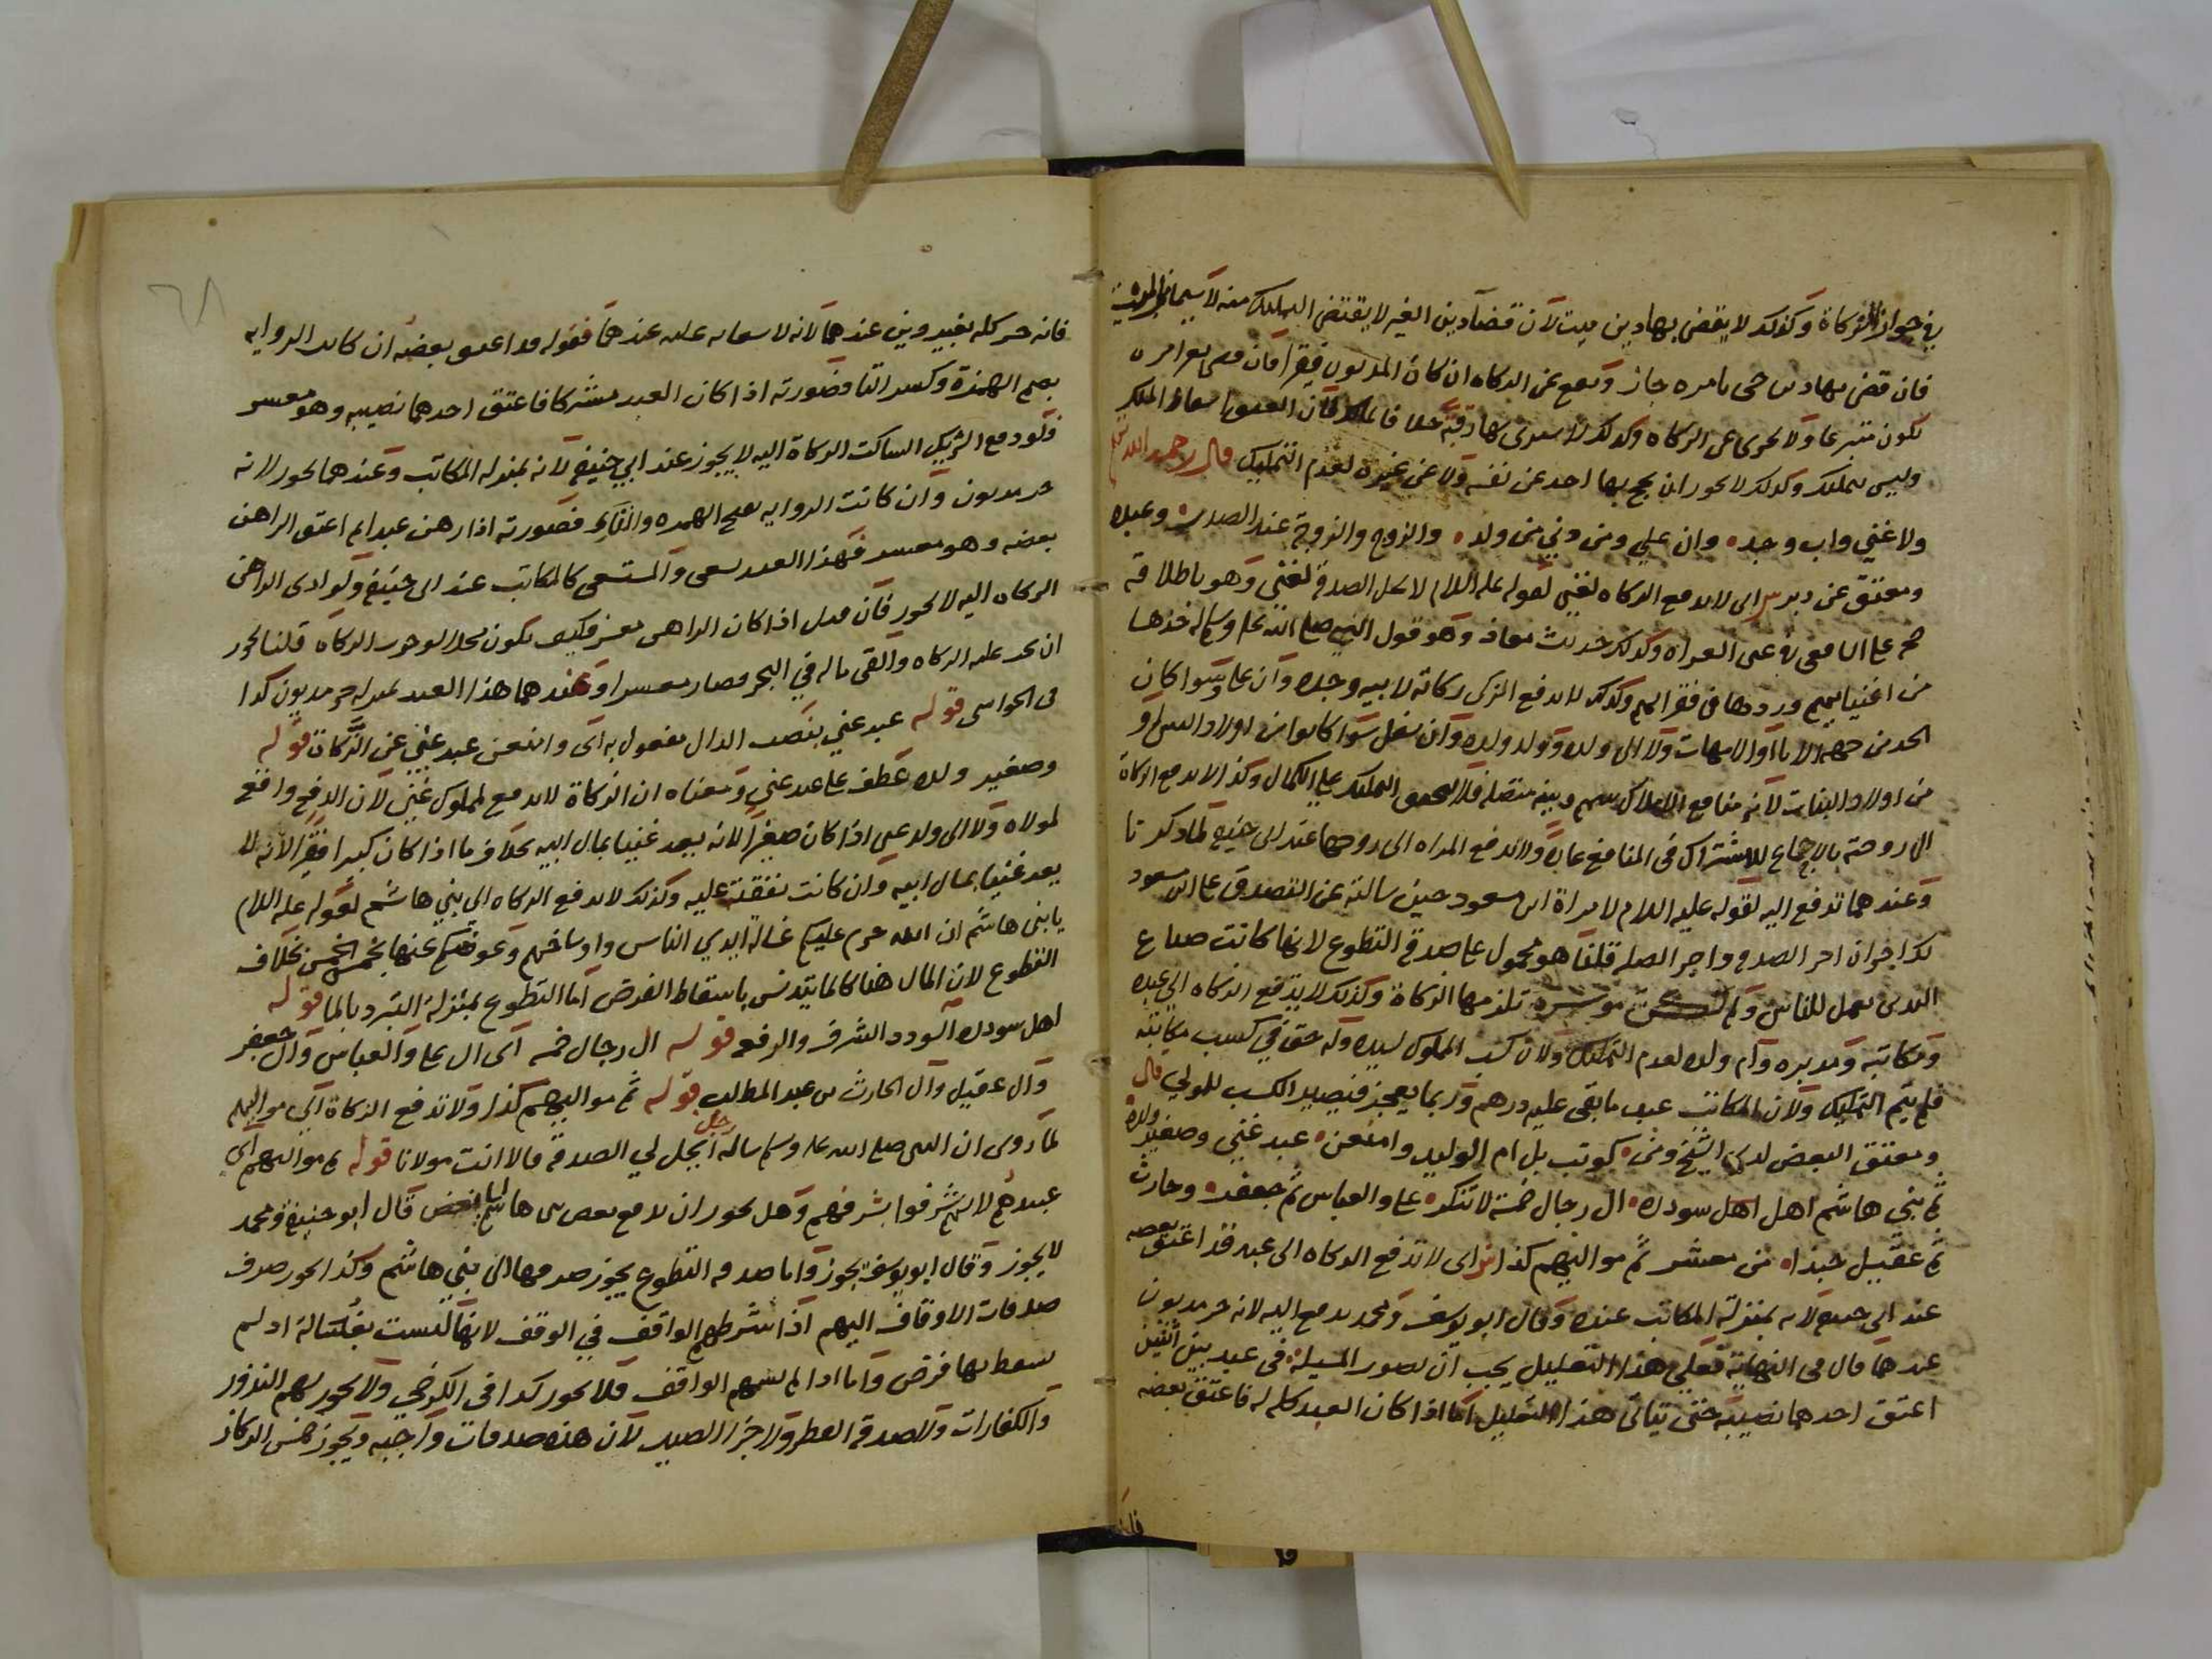 في جواز الزكاة وكذلك لا يقضى بها دين ميت لان قضآ دين الغير لا يقتضى التمليك منه لا سيما من الميت
فان قضى بها دين حى بامره جاز ويقع عن الزكاه ان كان المديون فقيرا فان قضى بغير امره
يكون متبرعا ولا يجزى عن الزكاه وكذلك لا يشترى بها رقبة
وليس بتمليك وكذلك لا يجوز ان يحج بها احد عن نفسه ولا عن غيره لعدم التمليك قال رحمه الله
ولا غني واب وجد وان علي ومن دني من ولد والزوج والزوجة عند الصدر وعبده
ومعتق عن دبر ش اى لا يدفع الزكاه لغني لقوله عليه السلام لا تحل الصدقة لغنى وهو باطلاقه
حجة على الشافعى فى غنى الغزاة وكذلك حديث معاذ وهو قول النبي صلى الله عليه وسلم خذها
من اغنيايهم وردها فى فقرايهم وكذلك لا يدفع المزكى زكاته لابيه وجده وان علا وسوا كان
الجد من جهة الابآ او الامهات ولا الى ولده وولد ولده وان سفل سوا كانوا من اولاد البنين او
من اولاد البنات لان منافع الاملاك بينهم وبينه متصلة فلا يتحقق التمليك على الكمال وكذا لا يدفع الزكاة
الى زوجته بالاجماع للاشتراك فى المنافع عادة ولا تدفع المراه الى زوجها عند ابى حنيفة لما ذكرنا
وعندهما تدفع اليه لقوله عليه السلام لامراة ابن مسعود حين سالته عن التصدق على ابن مسعود
لك اجران اجر الصدقة واجر الصلة قلنا هو محمول على صدقة التطوع لانها كانت صناع
اليدين تعمل للناس ولم تكن موسرة تلزمها الزكاة وكذلك لا يدفع الزكاه الى عبده
ومكاتبه ومدبره وام ولده لعدم التمليك ولان كسب المملوك لسيده وله حق في كسب مكاتبه
فلم يتم التمليك ولان المكاتب عبد ما بقى عليه درهم وربما يعجز فيصير الكسب للمولي قال
ومعتق البعض لدى الشيخ ومن كوتب بل ام الوليد وامنعن عبد غني وصغير ولده
ثم بني هاشم اهل اهل سودده ال رجال خمسة لا تنكره على والعباس ثم جعفره وحارث
ثم عقيل حبذاه من معشر ثم مواليهم كذا ش اى لا تدفع الزكاه الى عبد قد اعتق بعضه
عند ابى حنيفة لانه بمنزلة المكاتب عنده وقال ابو يوسف ومحمد يدفع اليه لانه حر مديون
عندهما قال في النهاية فعلى هذا التعليل يجب ان تصور المسيلة فى عبد بين اثنين
اعتق احدهما نصيبه حتى يتاتى هذا التعليل اما اذا كان العبد كله له فاعتق بعضه
فانه
٦٨
فانه حر كله بغير دين عندهما لانه لا سعاية عليه عندهما فقوله قد اعتق بعضه ان كانت الرواية
بضم الهمزة وكسر التا فصورته اذا كان العبد مشتركا فاعتق احدهما نصيبه وهو معسر
فلو دفع الشريك الساكت الزكاة اليه لا يجوز عند ابي حنيفة لانه بمنزلة المكاتب وعندهما يجوز لانه
حر مديون وان كانت الرواية بفتح الهمزه والتاء فصورته اذا رهن عبدا ثم اعتق الراهن
بعضه وهو معسر فهذا العبد يسعى والمستسعى كالمكاتب عند ابى حنيفة ولو ادى الراهن
الزكاه اليه لا يجوز فان قيل اذا كان الراهن معسرا فكيف يكون محلا لوجوب الزكاه قلنا يجوز
ان تجب عليه الزكاه والقى ماله في البحر فصار معسرا وعندهما هذا العبد بمنزلة حر مديون كذا
فى الحواشى قوله عبد غني بنصب الدال مفعول به اى وامنعن عبد غني عن الزكاة قوله
وصغير ولده عطف على عبد غني ومعناه ان الزكاة لا تدفع لمملوك غني لان الدفع واقع
لمولاه ولا الى ولد غنى اذا كان صغيرا لانه يعد غنيا بمال ابيه بخلاف ما اذا كان كبيرا فقيرا لانه لا
يعد غنيا بمال ابيه وان كانت نفقته عليه وكذلك لا تدفع الزكاه الى بني هاشم لقوله عليه السلام
يا بنى هاشم ان الله حرم عليكم غسالة ايدي الناس واوساخهم وعوضكم عنها بخمس الخمس بخلاف
التطوع لان المال هنا كالما يتدنس باسقاط الفرض اما التطوع بمنزلة التبرد بالما قوله
اهل سودده السودد الشرف والرفعة قوله ال رجال خمسة اى ال على وال العباس وال جعفر
وال عقيل وال الحارث بن عبد المطلب قوله ثم مواليهم كذا ولا تدفع الزكاة الى مواليهم
لما روى ان النبى صلى الله عليه وسلم ساله رجل ايحل لي الصدقة قال لا انت مولانا قوله ثم مواليهم اى
عبيدهم لانهم شرفوا بشرفهم وهل يجوز ان يدفع بعض بنى هاشم لبعض قال ابو حنيفة ومحمد
لا يجوز وقال ابو يوسف يجوز واما صدقة التطوع يجوز صرفها الى بني هاشم وكذا يجوز صرف
صدقات الاوقاف اليهم اذا شرطهم الواقف في الوقف لانها ليست بغسالة اذ لم
يسقط بها فرض واما اذا لم يسمهم الواقف فلا يجوز كذا فى الكرخي ولا يجوز لهم النذور
والكفارات ولا صدقة الفطر ولا جزا الصيد لان هذه صدقات واجبه ويجوز خمس الركاز